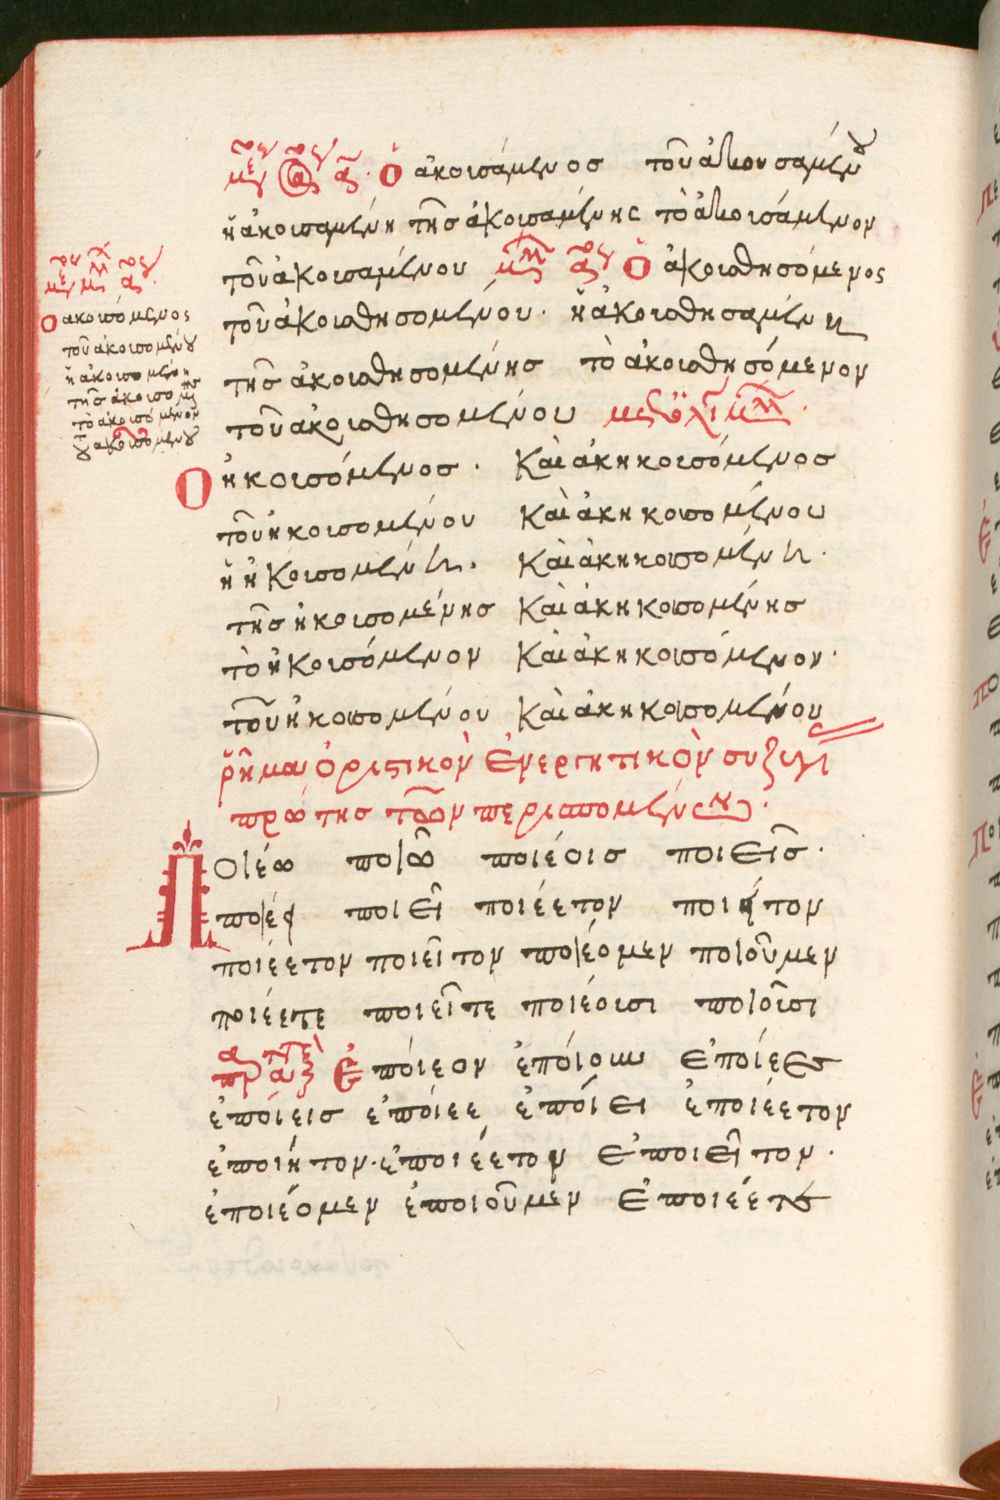 Ὁ ἀκουσάμενος τοῦ ἀκουσαμένου
ἡ ἀκουσαμένη τῆς ἀκουσαμένης τὸ ἀκουσάμενον
τοῦ ἀκουσαμένου Ὁ ἀκουσθησόμενος
τοῦ ἀκουσθησομένου· ἡ ἀκουσθησαμένη
τῆς ἀκουσθησομένης τὸ ἀκουσθησόμενον
τοῦ ἀκουσθησομένου
Ὁ ἠκουσόμενος · καὶ ἀκηκουσόμενος
τοῦ ἠκουσομένου καὶ ἀκηκουσομένου
ἡ ἠκουσομένη. καὶ ἀκηκουσομένη·
τῆς ἠκουσομένης καὶ ἀκηκουσομένης
τὸ ἠκουσόμενον καὶ ἀκηκουσόμενον·
τοῦ ἠκουσομένου καὶ ἀκηκουσομένου
ῥῆμα ὁριστικὸν ἐνεργητικὸν συζυγί
πρώτης τῶν περισπωμένων·
Ποιέω ποιῶ ποιέεις ποιεῖς·
ποιέει ποιεῖ ποιέετον ποιῆτον
ποιέετον ποιεῖτον ποιέομεν ποιοῦμεν
ποιέετε ποιεῖτε ποιέουσι ποιοῦσι
Ἐποίεον ἐποίουν ἐποίεες
ἐποίεις ἐποίεε ἐποίει ἐποιέετον
ἐποιήτον· ἐποιέετον ἐποιεῖτον·
ἐποιέομεν ἐποιοῦμεν ἐποιέετε
ὁ ἀκουσόμενος
τοῦ ἀκουσομένου
ἡ ἀκουσομένη
τῆς ἀκουσομένης
τὸ ἀκουσόμενον
τοῦ ἀκουσομένου